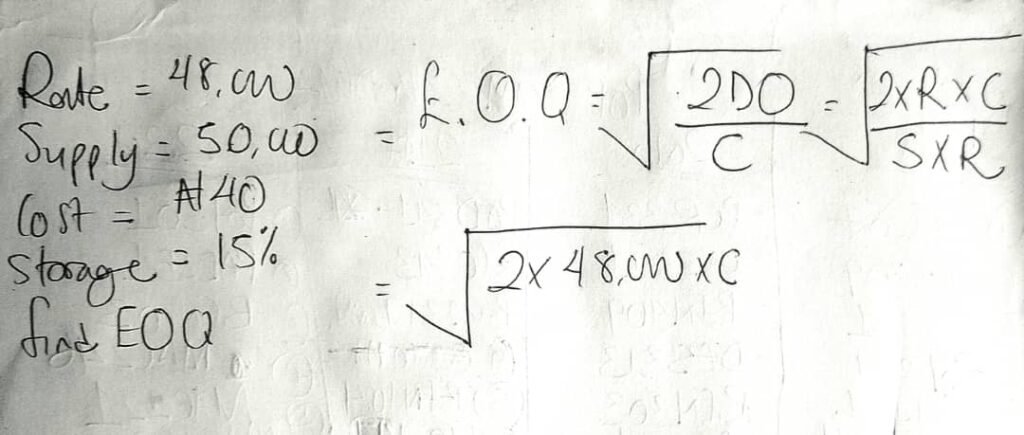 Rate = 48,000
Supply = 50,000
Cost = ₦40
Storage = 15%
find EOQ
= E.O.Q = √(2DO / C) = √(2xRxC / SXR)
= √(2x 48,000 x C)